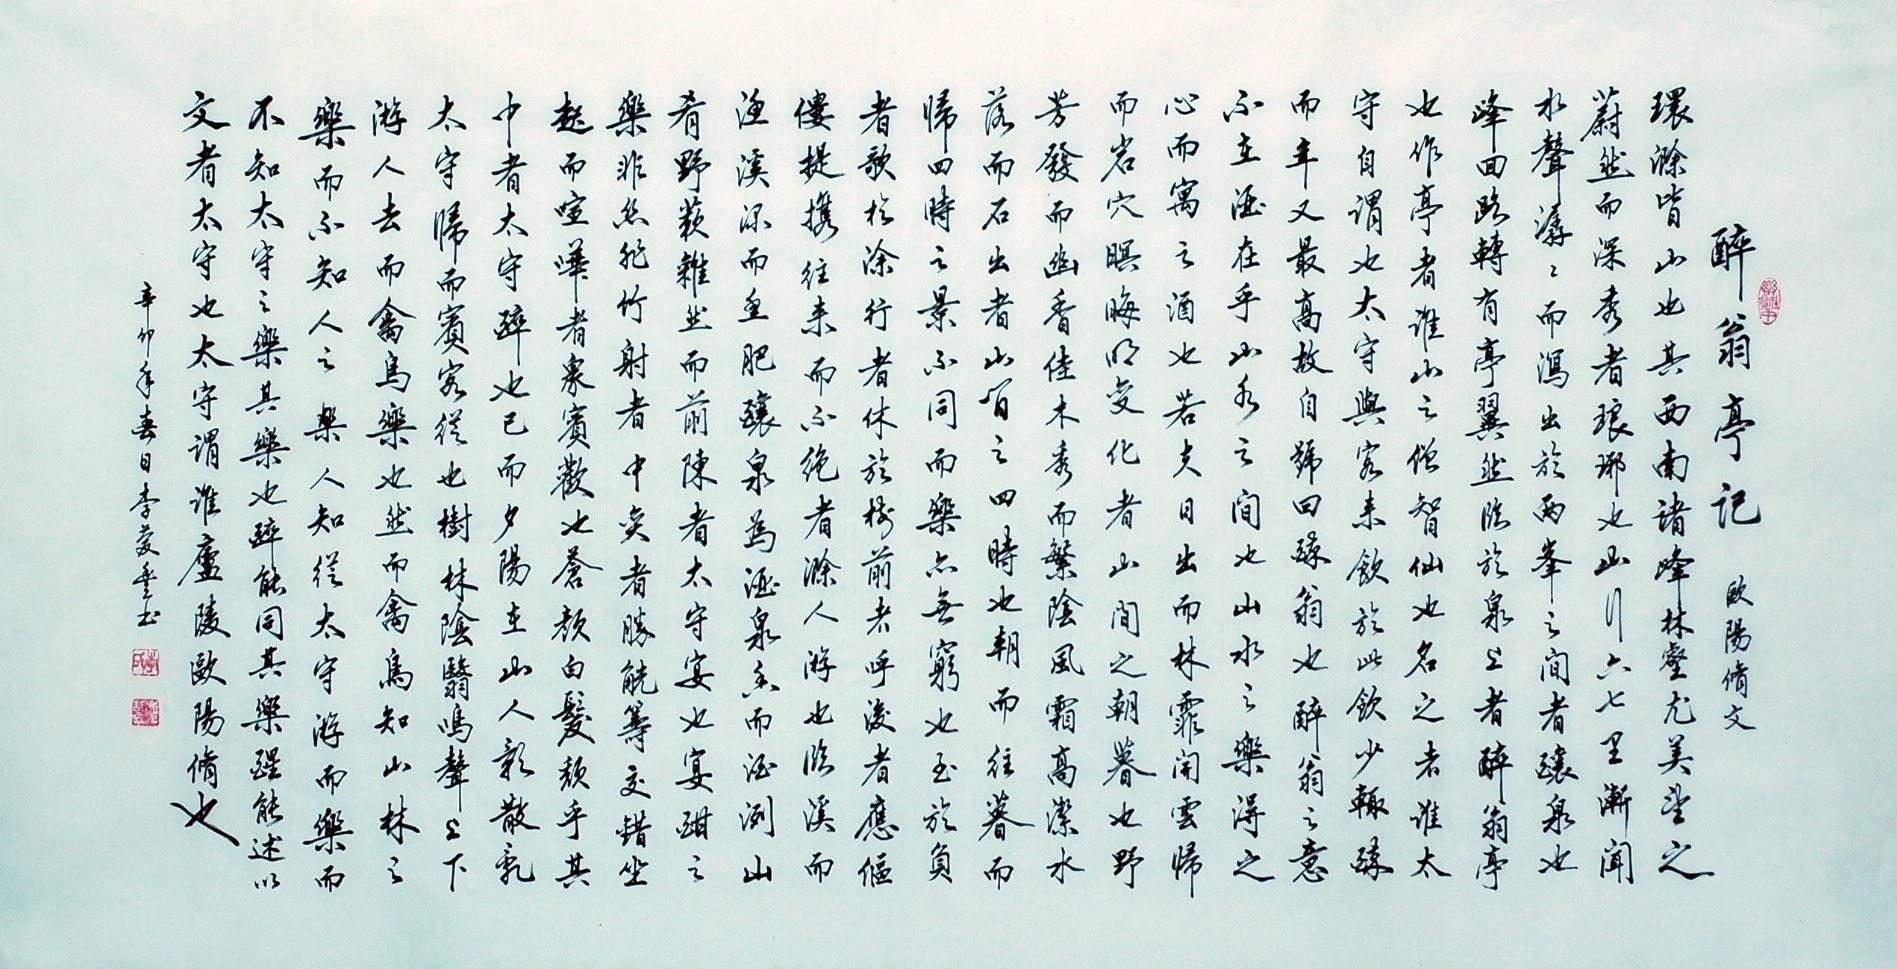 醉翁亭記 歐陽脩文
環滁皆山也其西南諸峰林壑尤美望之
蔚然而深秀者琅琊也山行六七里漸聞
水聲潺〻而瀉出於兩峯之間者釀泉也
峰回路轉有亭翼然臨於泉上者醉翁亭
也作亭者誰山之僧智仙也名之者誰太
守自謂也太守與客來飲於此飲少輒醉
而年又最高故自號曰醉翁也醉翁之意
不在酒在乎山水之間也山水之樂得之
心而寓之酒也若夫日出而林霏開雲歸
而岩穴暝晦明變化者山間之朝暮也野
芳發而幽香佳木秀而繁陰風霜高潔水
落而石出者山間之四時也朝而往暮而
歸四時之景不同而樂亦無窮也至於負
者歌於涂行者休於樹前者呼後者應傴
僂提攜往來而不絶者滁人游也臨溪而
漁溪深而魚肥釀泉為酒泉香而酒洌山
肴野蔌雜然而前陳者太守宴也宴酣之
樂非絲非竹射者中奕者勝觥籌交錯坐
起而喧嘩者衆賓歡也蒼顏白髮頹乎其
中者太守醉也已而夕陽在山人影散亂
太守歸而賓客從也樹林陰翳鳴聲上下
游人去而禽鳥樂也然而禽鳥知山林之
樂而不知人之樂人知從太守游而樂而
不知太守之樂其樂也醉能同其樂醒能述以
文者太守也太守謂誰廬陵歐陽脩也
辛卯年春日李慶生书